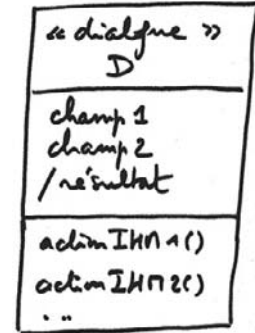 « dialogue »
D
champ 1
champ 2
/résultat
action IHM 1()
action IHM 2()
...